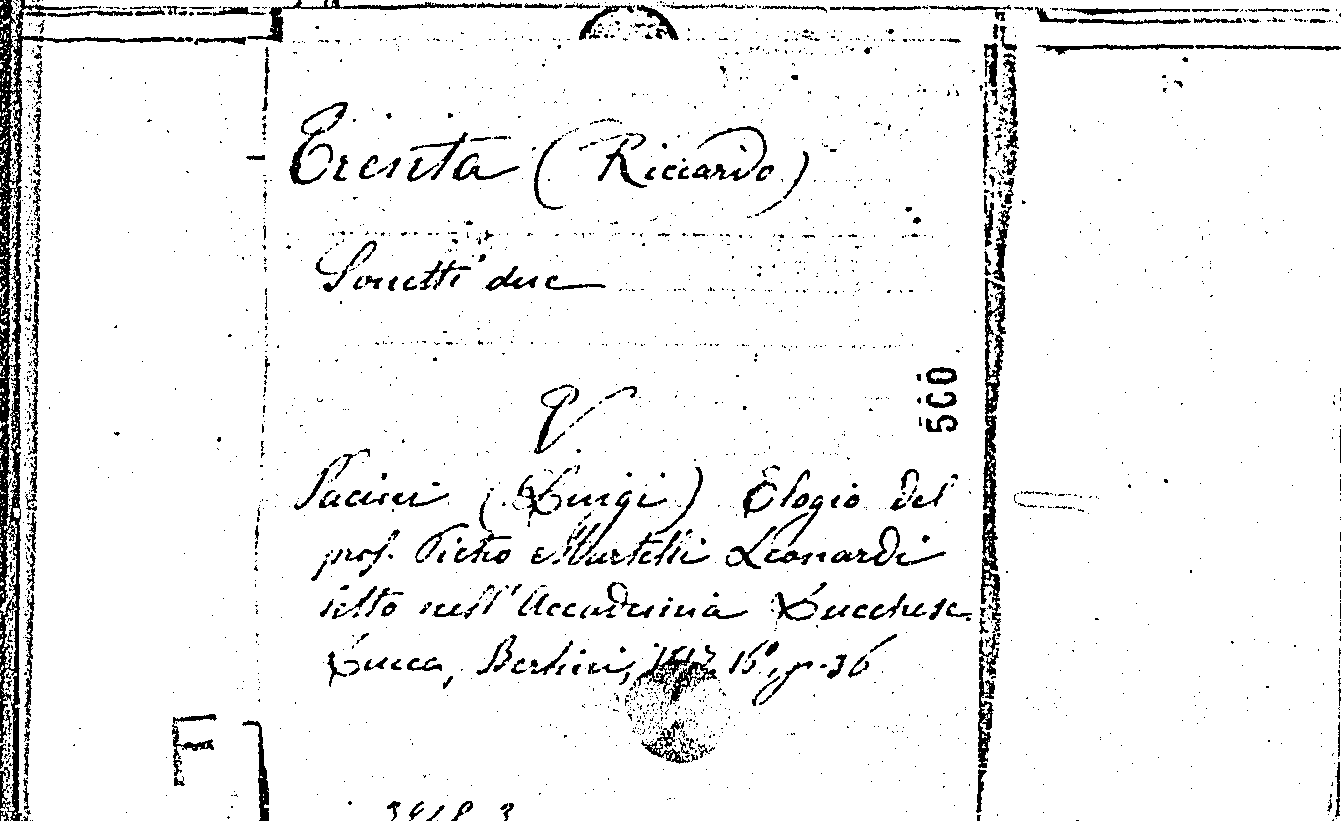 Trenta (Riccardo)
Sonetti due
V
500
Pacini (Luigi) Elogio del
prof. Pietro Martelli Leonardi
letto nell'Accademia Lucchese.
Lucca, Bertini, 16°, p. 36
F